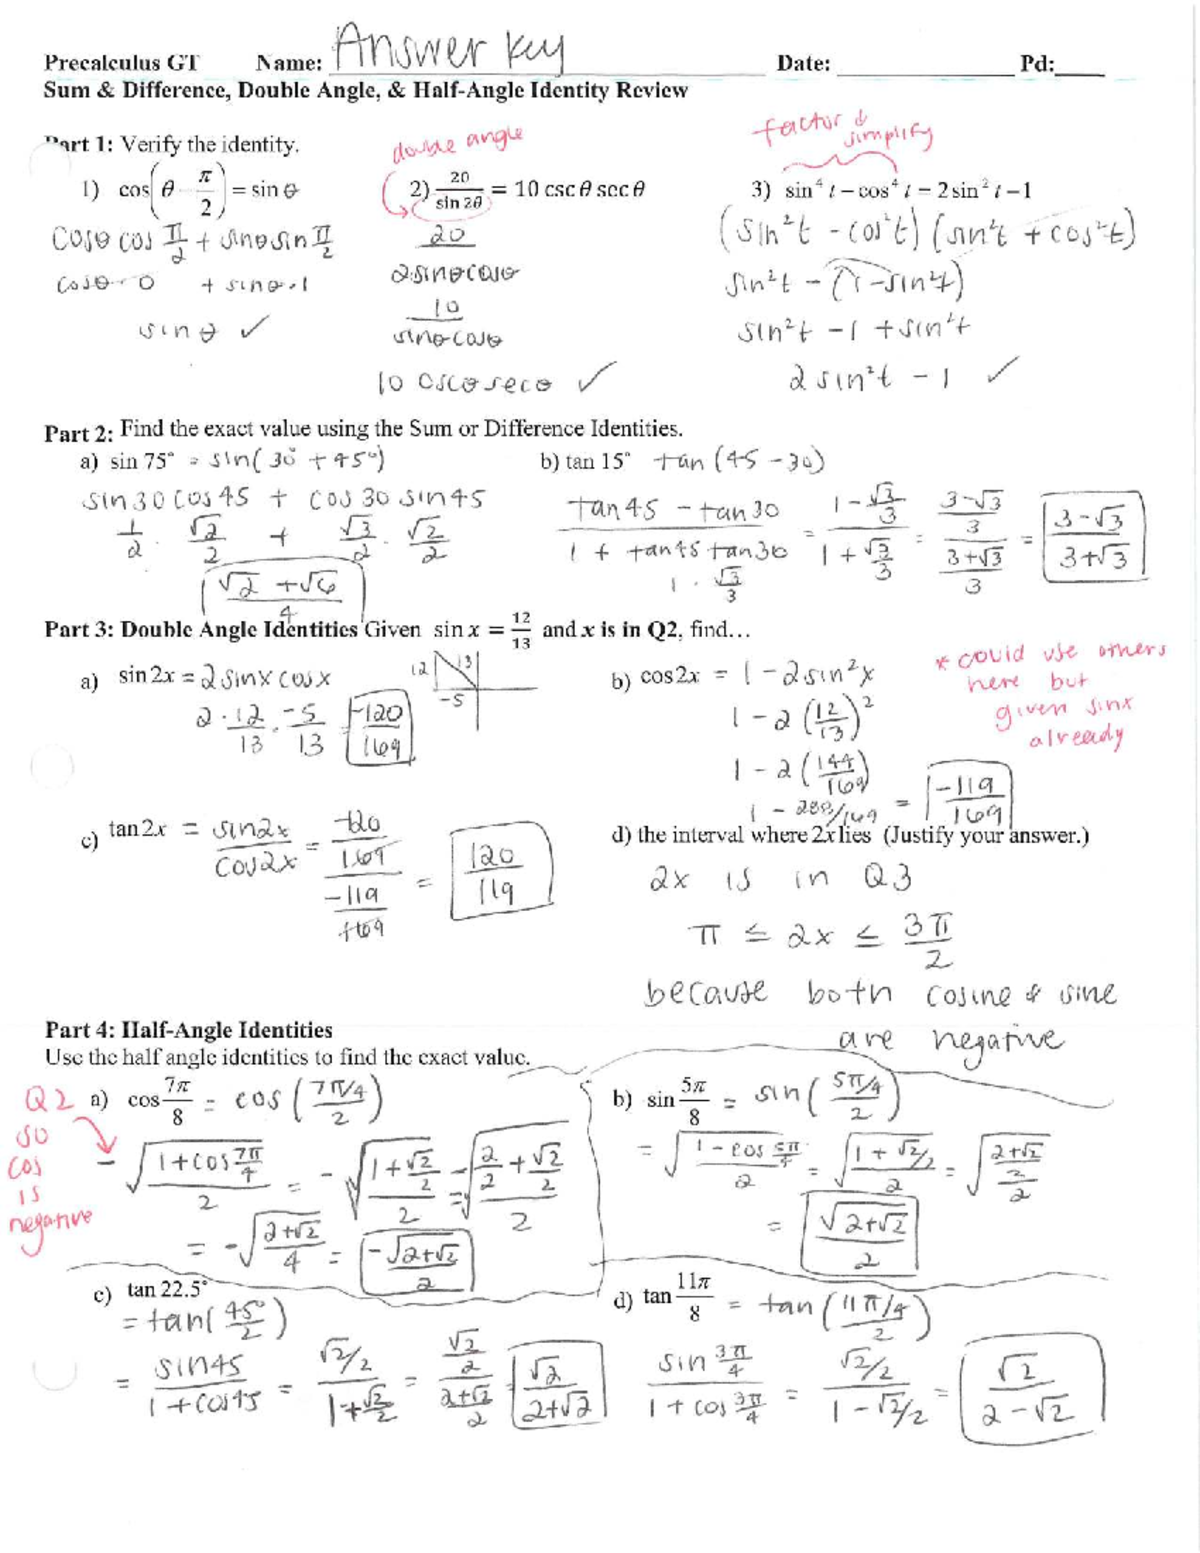 Precalculus GT Name: Answer Key Date: ____ Pd:____
Sum & Difference, Double Angle, & Half-Angle Identity Review
Part 1: Verify the identity.
double angle
factor & simplify
1) cos(θ π/2) = sin θ
cosθ cos π/2 + sinθ sin π/2
cosθ · 0 + sinθ · 1
sin θ ✓
2) 20/sin 2θ = 10 csc θ sec θ
20/2sinθcosθ
10/sinθcosθ
10 cscθ secθ ✓
3) sin⁴ t – cos⁴ t = 2 sin² t – 1
(sin²t - cos²t)(sin²t + cos²t)
sin²t - (1 - sin²t)
sin²t - 1 + sin²t
2 sin²t - 1 ✓
Part 2: Find the exact value using the Sum or Difference Identities.
a) sin 75° = sin(30° + 45°)
sin30cos45 + cos30 sin45
1/2 · √2/2 + √3/2 · √2/2
√2 + √6 / 4
b) tan 15° tan(45 - 30)
tan45 - tan30 / 1 + tan45 tan30 = 1 - √3/3 / 1 + √3/3 = 3-√3/3 / 3+√3/3 = 3-√3 / 3+√3
1 · √3/3
Part 3: Double Angle Identities Given sin x = 12/13 and x is in Q2, find…
a) sin 2x = 2 sinx cosx
12 13 -5
2 · 12/13 · -5/13 = -120/169
b) cos 2x = 1 - 2sin²x
1 - 2(12/13)²
1 - 2(144/169)
1 - 288/169 = -119/169
* could use others
here but
given sinx
already
c) tan 2x = sin2x/cos2x = -120/169 / -119/169 = 120/119
d) the interval where 2x lies (Justify your answer.)
2x is in Q3
π ≤ 2x ≤ 3π/2
because both cosine & sine
are negative
Part 4: Half-Angle Identities
Use the half angle identities to find the exact value.
Q2
so
cos
is
negative
a) cos 7π/8 = cos(7π/4 / 2)
-√(1+cos 7π/4 / 2) = -√(1+√2/2 / 2) = -√(2/2+√2/2 / 2)
= -√(2+√2 / 4) = -√(2+√2) / 2
b) sin 5π/8 = sin(5π/4 / 2)
= √(1 - cos 5π/4 / 2) = √(1+√2/2 / 2) = √(2+√2/2 / 2)
= √(2+√2) / 2
c) tan 22.5°
= tan(45°/2)
= sin45 / 1+cos45 = √2/2 / 1+√2/2 = √2/2 / 2+√2/2 = √2 / 2+√2
d) tan 11π/8 = tan(11π/4 / 2)
sin 3π/4 / 1 + cos 3π/4 = √2/2 / 1-√2/2 = √2 / 2-√2